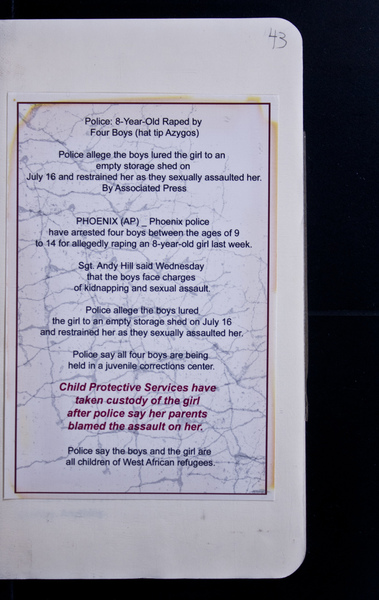 43
Police: 8-Year-Old Raped by
Four Boys (hat tip Azygos)
Police allege the boys lured the girl to an
empty storage shed on
July 16 and restrained her as they sexually assaulted her.
By Associated Press
PHOENIX (AP) _ Phoenix police
have arrested four boys between the ages of 9
to 14 for allegedly raping an 8-year-old girl last week.
Sgt. Andy Hill said Wednesday
that the boys face charges
of kidnapping and sexual assault.
Police allege the boys lured
the girl to an empty storage shed on July 16
and restrained her as they sexually assaulted her.
Police say all four boys are being
held in a juvenile corrections center.
Child Protective Services have
taken custody of the girl
after police say her parents
blamed the assault on her.
Police say the boys and the girl are
all children of West African refugees.